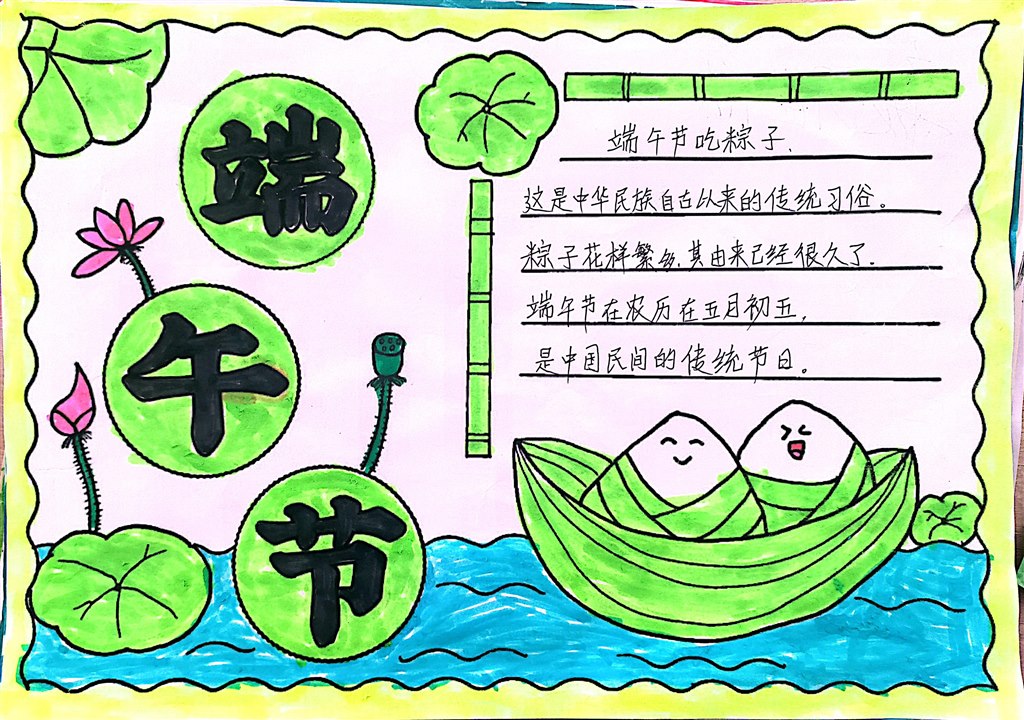 端午节
端午节吃粽子.
这是中华民族自古以来的传统习俗。
粽子花样繁多.其由来已经很久了.
端午节在农历在五月初五,
是中国民间的传统节日。